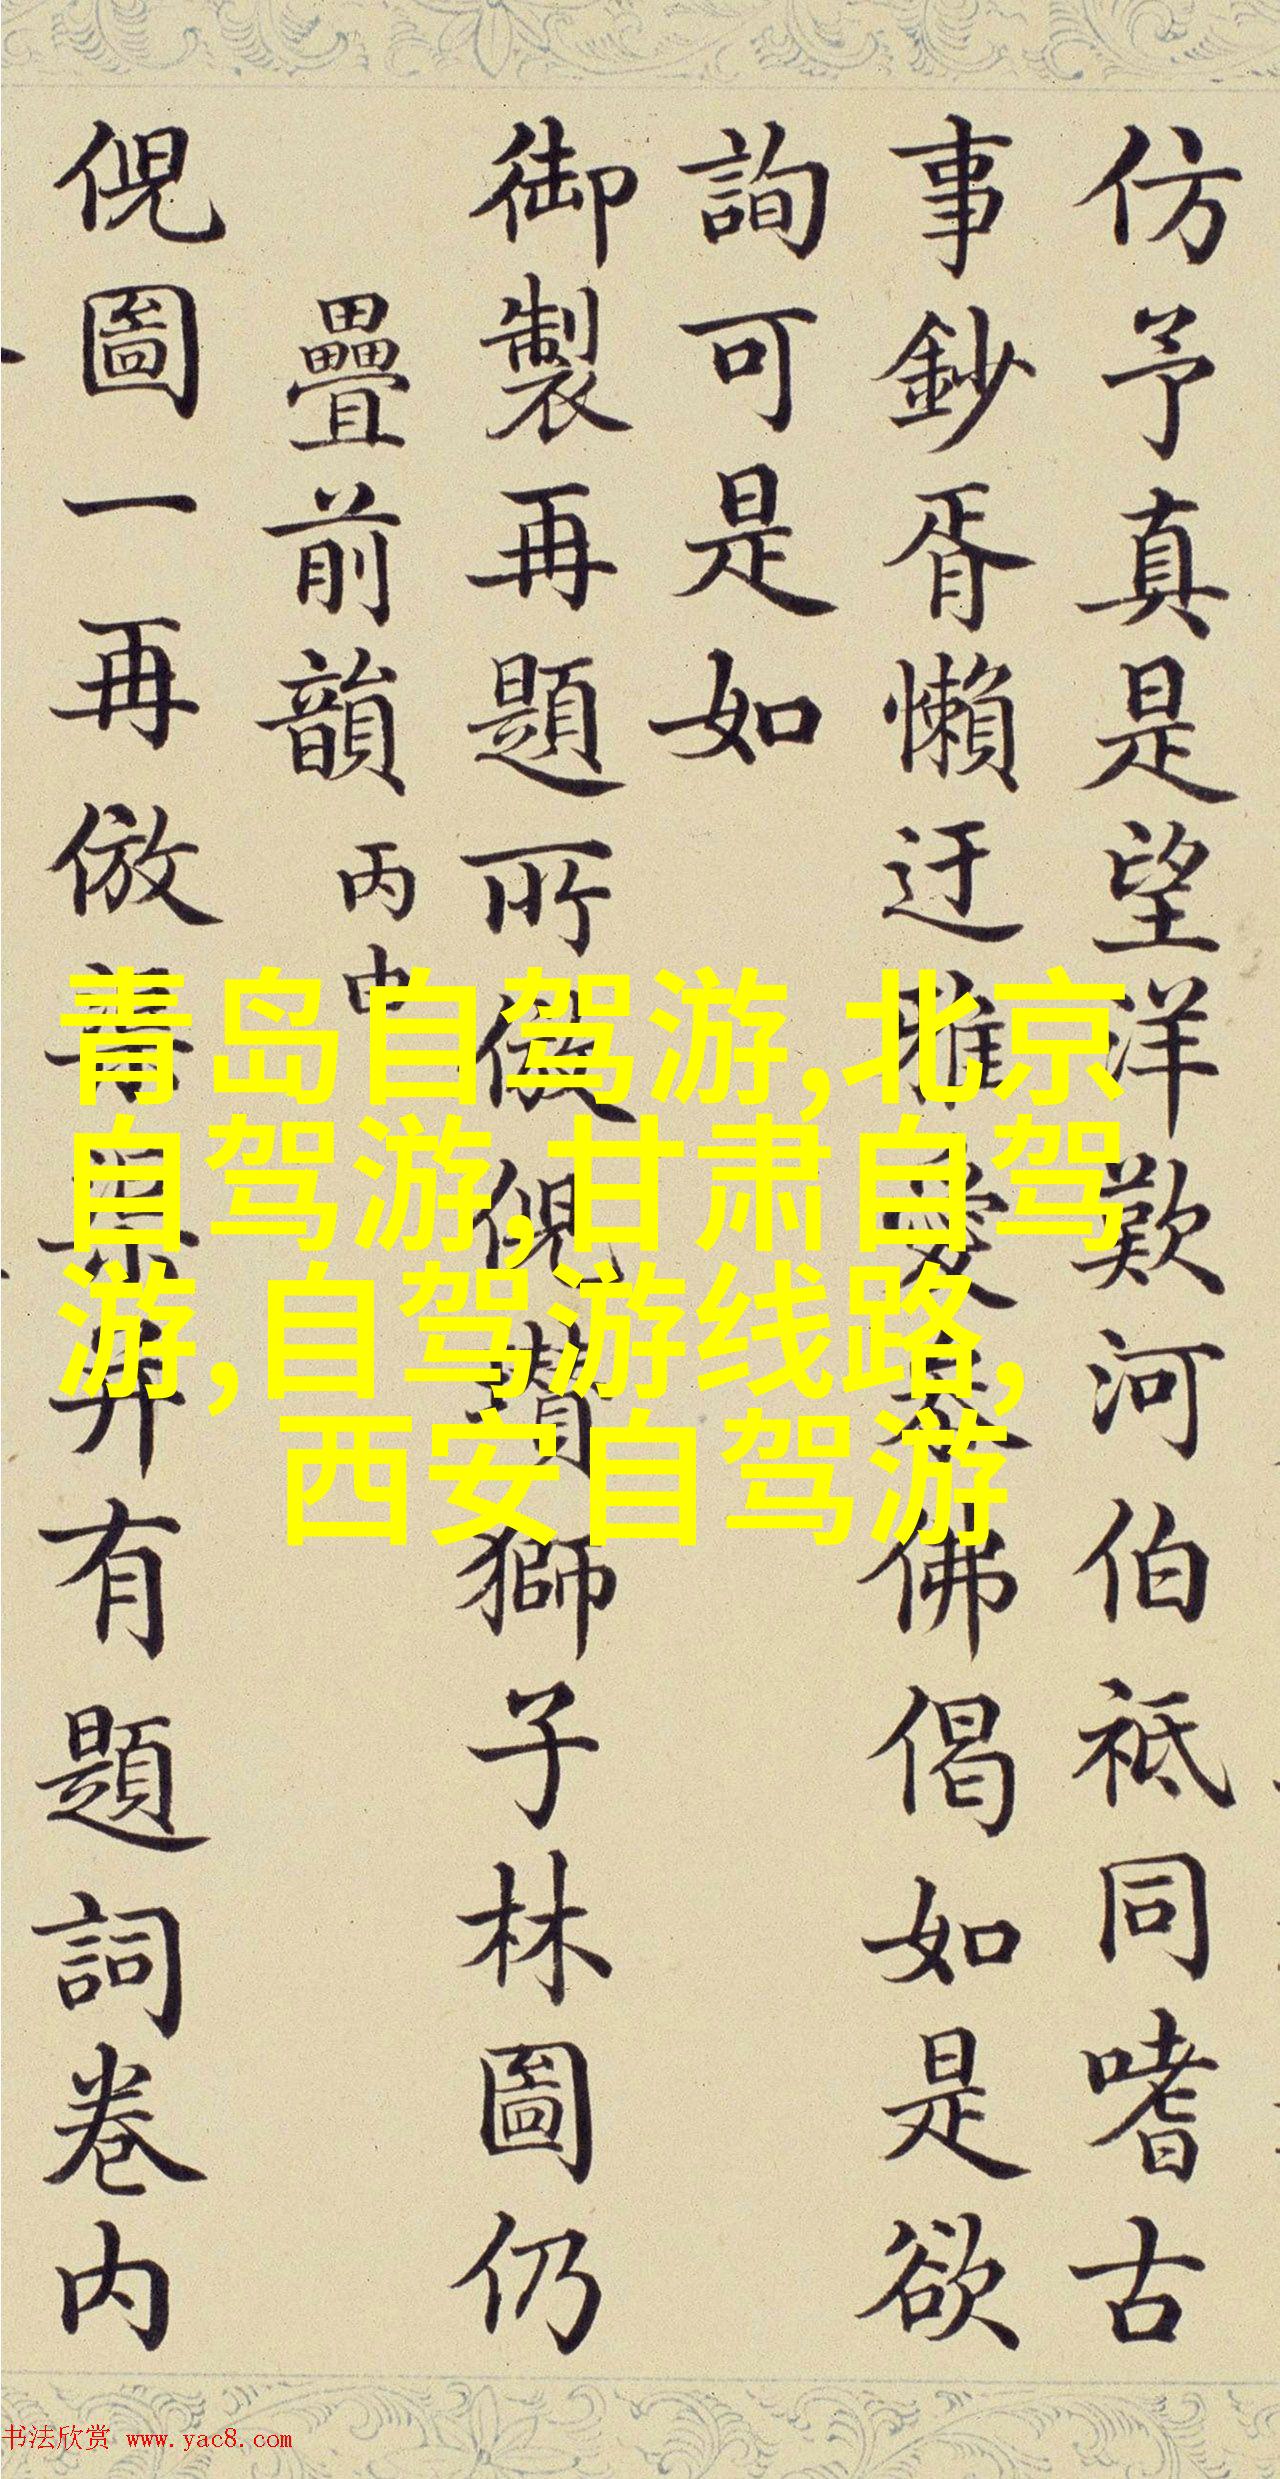 仿予真是望洋歎河伯祗同嗜古
事鈔胥懶迂雅愛佛偈如是欲
詢可是如
御製再題所倣倪瓚獅子林圖仍
疊前韻 丙申
倪圖一再倣有題詞卷内
青岛自驾游,北京
自驾游,甘肃自驾
游,自驾游线路,
西安自驾游
书法欣赏 www.yac8.com